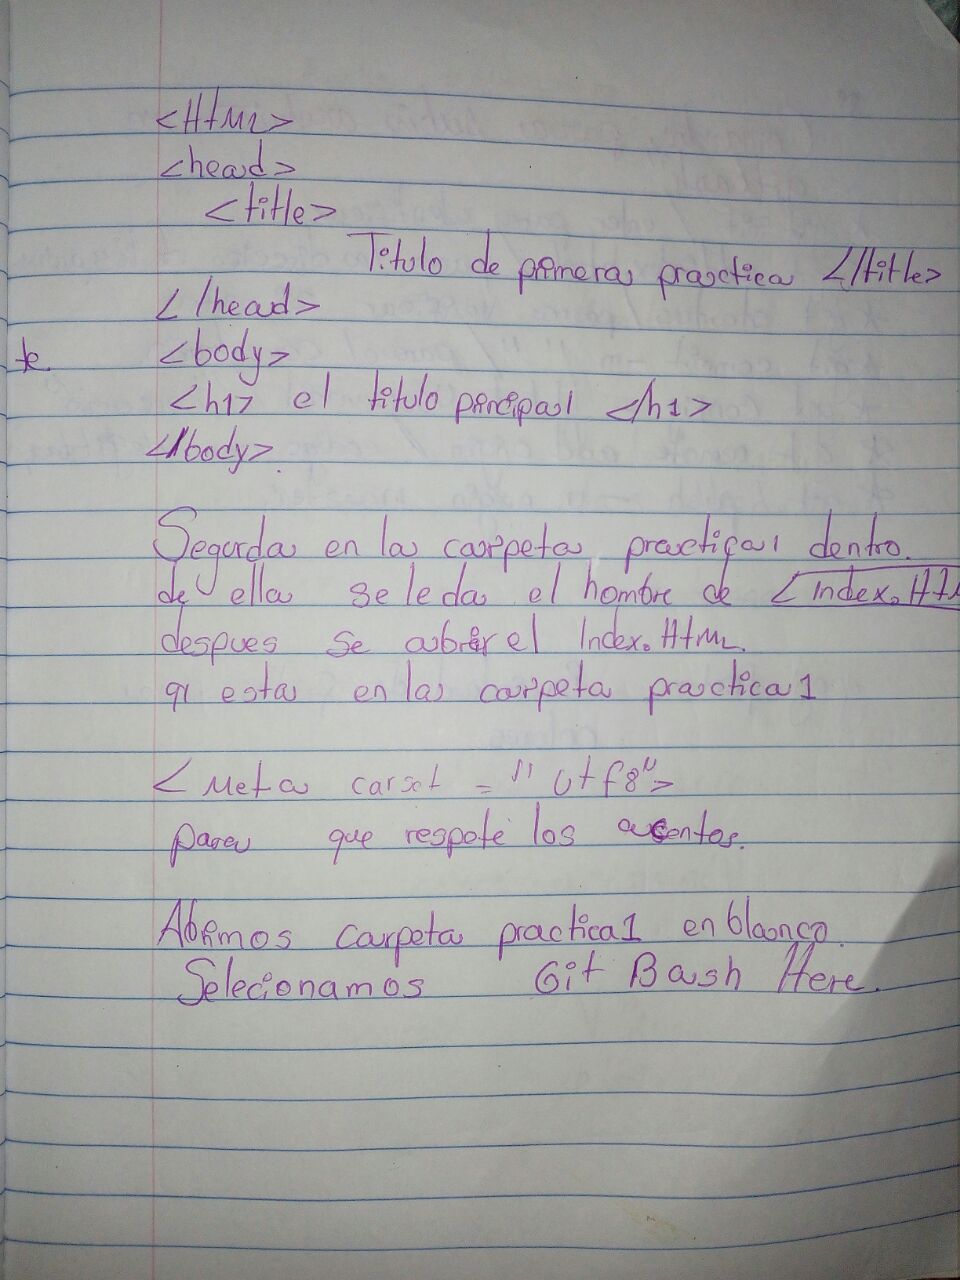 <HtML>
<head>
<title>
Titulo de primera practica </title>
</head>
<body>
<h1> el titulo principal </h1>
</body>.
en la carpeta practica1 dentro.
de ella se le da el nombre de <Index.HtM
despues se abrir el Index.HtML
qi esta en la carpeta practica 1
< Meta carset = " utf8">
para que respete los acentos.
Abrimos carpeta practica1 en blanco.
Selecionamos Git Bash Here.